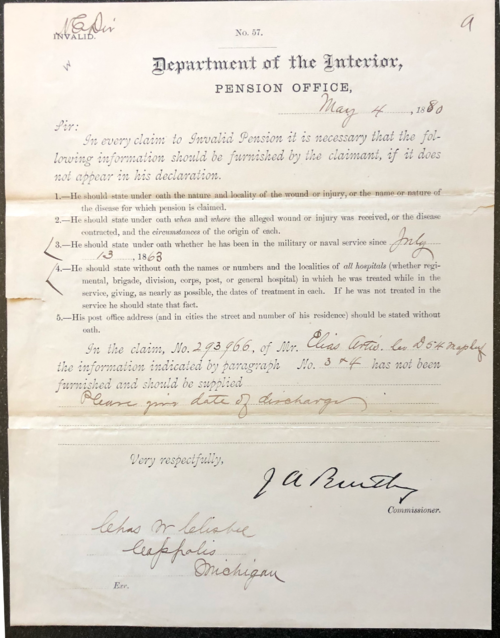 N. E. Div
INVALID.
No. 57.
Department of the Interior,
PENSION OFFICE,
May 4, 1880
Sir:
In every claim to Invalid Pension it is necessary that the fol-
lowing information should be furnished by the claimant, if it does
not appear in his declaration.
1.—He should state under oath the nature and locality of the wound or injury, or the name or nature of
the disease for which pension is claimed.
2.—He should state under oath when and where the alleged wound or injury was received, or the disease
contracted, and the circumstances of the origin of each.
3.—He should state under oath whether he has been in the military or naval service since July
13, 1863
4.—He should state without oath the names or numbers and the localities of all hospitals (whether regi-
mental, brigade, division, corps, post, or general hospital) in which he was treated while in the
service, giving, as nearly as possible, the dates of treatment in each. If he was not treated in the
service he should state that fact.
5.—His post office address (and in cities the street and number of his residence) should be stated without
oath.
In the claim, No. 293,966, of Mr. Elias Artis. Co D 54
the information indicated by paragraph No. 3 & 4 has not been
furnished and should be supplied
Please give date of discharge
Very respectfully,
J A Bentley
Commissioner.
Chas W
Michigan